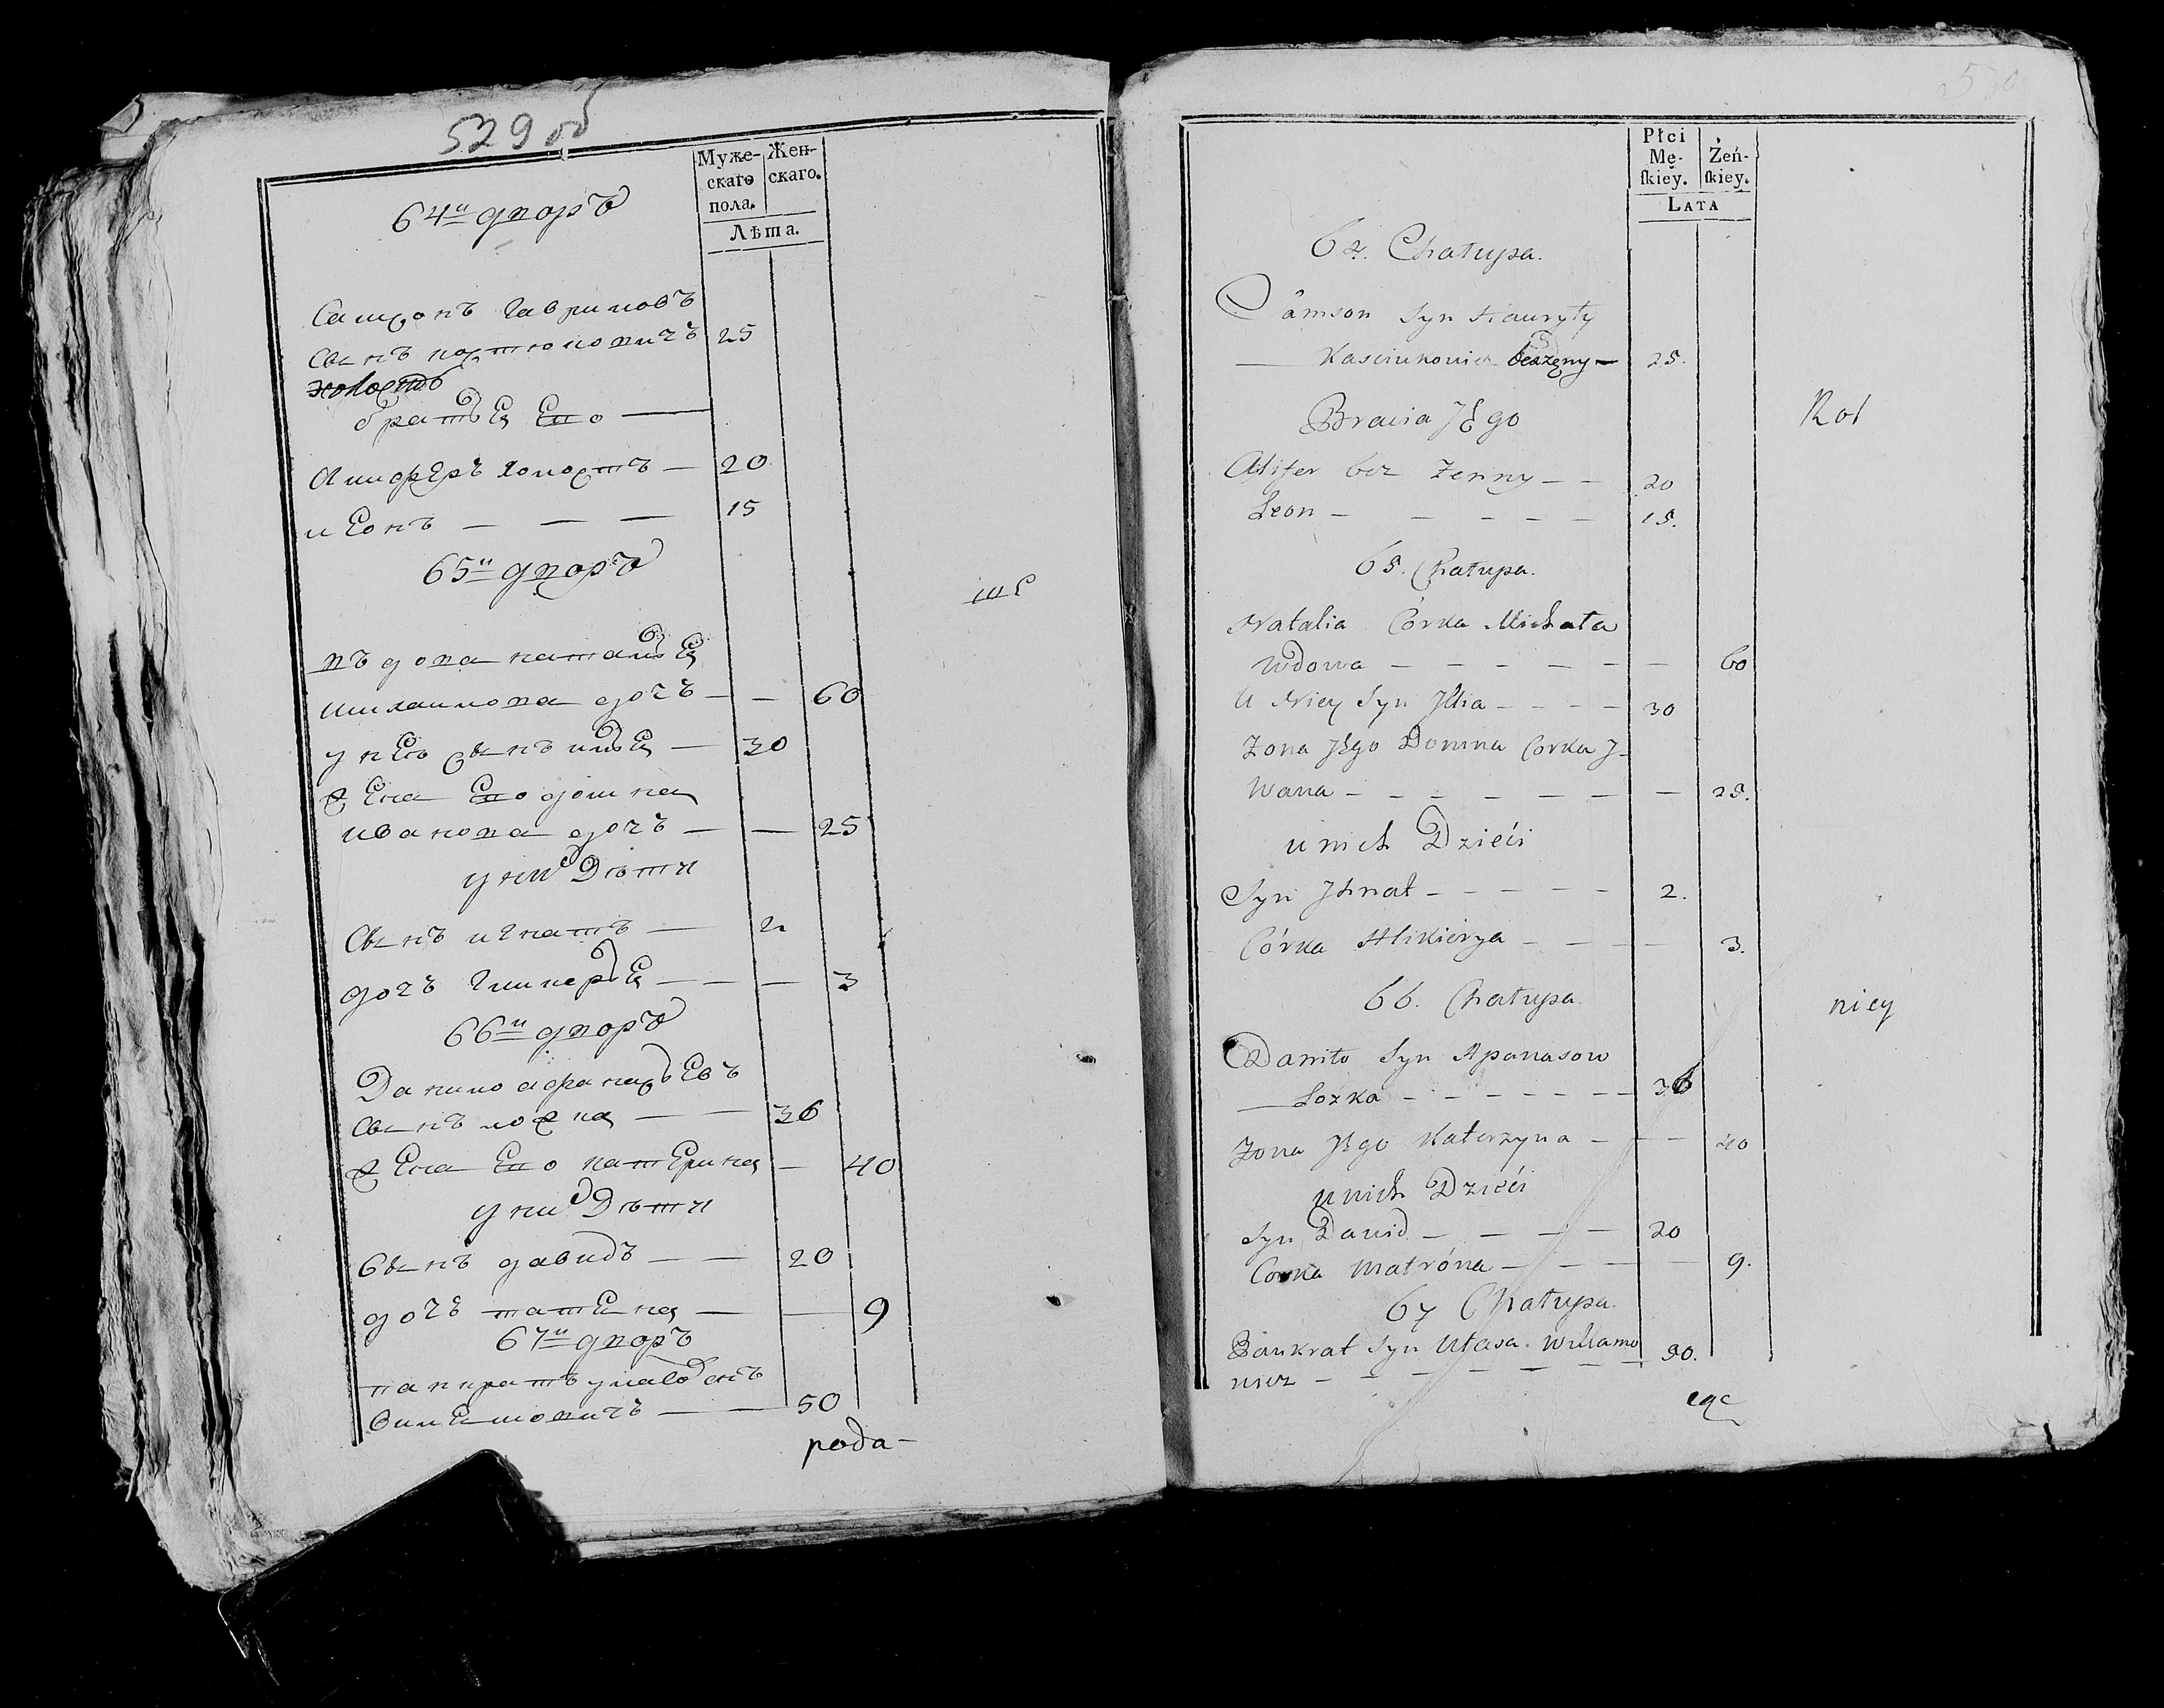 529 об
Муже-
скаго
пола.
Жен-
скаго.
Лѣта.
64й дворъ
Самсонъ Гавриловъ
сынъ костюковичъ 25
холостъ
братья Его —
Алиферъ холостъ — 20
леонъ — — — 15
65й дворъ
вдова наталья
михаилова дочъ — — 60
у нея сынъ илья — 30
жена Его домна
иванова дочъ — — 25
у них Дѣти
Сынъ игнатъ — 2
дочъ гликерья — — — 3
66й дворъ
Данило афанасьевъ
сынъ ложка — — 36
жена Его катерина — 40
у них Дѣти
Сынъ давидъ — — 20
дочъ — — 9
67й дворъ
панкратъ
— — 50
рода-
ше
530
Płci
Mę-
skiey.
Żeń-
skiey.
LATA
64. Chałupa.
Samson Syn Hauryły
— Kasciukowicz bezżenny — 25.
Bracia Jego
Alifer bez Zenny — — 20
Leon — — — — — 15.
65. Chałupa.
Natalia Córka Michała
Wdowa — — — — — — — 60
U Niey Syn Jllia — — — — 30
Zona Jego Domna Corka J-
wana — — — — — — — 25.
u nich Dzieći
Syn Jhnat — — — — — 2.
Córka Hlikierya — — — — 3.
66. Chałupa.
Daniło Syn Apanasow
— Łozka — — — — — — — 36
Zona Jego Katerzyna — — — 40
u nich Dzieći
Syn Dawid — — — — 20
Corka Matróna — — — — — 9.
67 Chałupa.
Pankrat Syn Ułasa
wicz — — — — — — 50.
Rot
niey